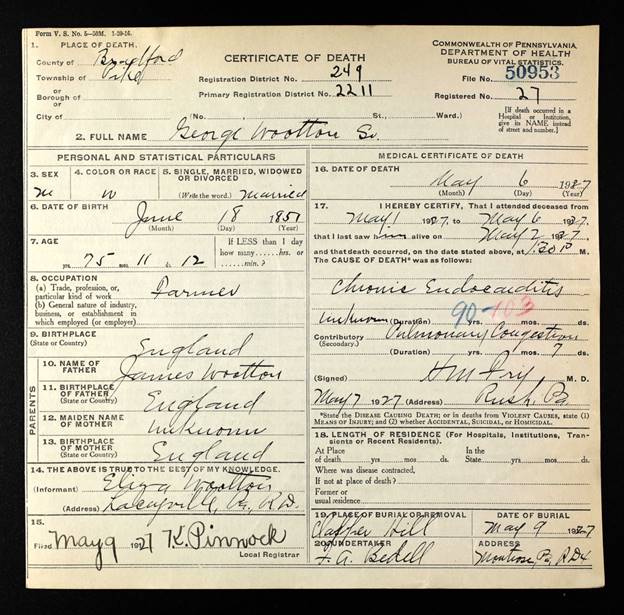 Form V. S. No. 5—50M. 1-20-26.
1. PLACE OF DEATH.
County of Bradford
Township of Pike
or
Borough of
or
City of
CERTIFICATE OF DEATH
Registration District No. 249
Primary Registration District No. 2211
No. St.; Ward.)
COMMONWEALTH OF PENNSYLVANIA
DEPARTMENT OF HEALTH
BUREAU OF VITAL STATISTICS.
File No. 50953
Registered No. 27
[If death occurred in a
Hospital or Institution,
give its NAME instead
of street and number.]
2. FULL NAME George Wootton Sr.
PERSONAL AND STATISTICAL PARTICULARS
3. SEX
m
4. COLOR OR RACE
W
5. SINGLE, MARRIED, WIDOWED
OR DIVORCED
(Write the word.) Married
6. DATE OF BIRTH
June 18 1851
(Month) (Day) (Year)
7. AGE
75 yrs. 11 mos. 12
If LESS than 1 day
how many hrs. or
min.?
8. OCCUPATION
(a) Trade, profession, or
particular kind of work
Farmer
(b) General nature of industry,
business, or establishment in
which employed (or employer)
9. BIRTHPLACE
(State or Country) England
PARENTS
10. NAME OF
FATHER James Wootton
11. BIRTHPLACE
OF FATHER
(State or Country) England
12. MAIDEN NAME
OF MOTHER Unknown
13. BIRTHPLACE
OF MOTHER
(State or Country) England
14. THE ABOVE IS TRUE TO THE BEST OF MY KNOWLEDGE.
(Informant) Eliza Wootton
(Address) Laceyville, Pa, R.D.
15.
Filed May 9 1927 K. Pinnock
Local Registrar
MEDICAL CERTIFICATE OF DEATH
16. DATE OF DEATH
May 6 1927
(Month) (Day) (Year)
17. I HEREBY CERTIFY, That I attended deceased from
May 1 1927 to May 6 1927
that I last saw him alive on May 2 1927
and that death occurred, on the date stated above, at 1:30 P M.
The CAUSE OF DEATH* was as follows:
Chronic Endocarditis
90-103
unknown (Duration) yrs. mos. ds.
Contributory Pulmonary Congestion
(Secondary.)
(Duration) yrs. mos. 7 ds.
(Signed) H M Fry M. D.
May 7 1927 (Address) Rush, Pa
*State the DISEASE CAUSING DEATH; or in deaths from VIOLENT CAUSES, state (1)
MEANS OF INJURY; and (2) whether ACCIDENTAL, SUICIDAL, or HOMICIDAL.
18. LENGTH OF RESIDENCE (For Hospitals, Institutions, Tran-
sients or Recent Residents).
At Place
of death yrs. mos. ds.
In the
State yrs. mos. ds.
Where was disease contracted,
if not at place of death?
Former or
usual residence
19. PLACE OF BURIAL OR REMOVAL
Clapper Hill
DATE OF BURIAL
May 9 1927
20. UNDERTAKER
F. A. Bedell
ADDRESS
Montrose, Pa, R.D.4